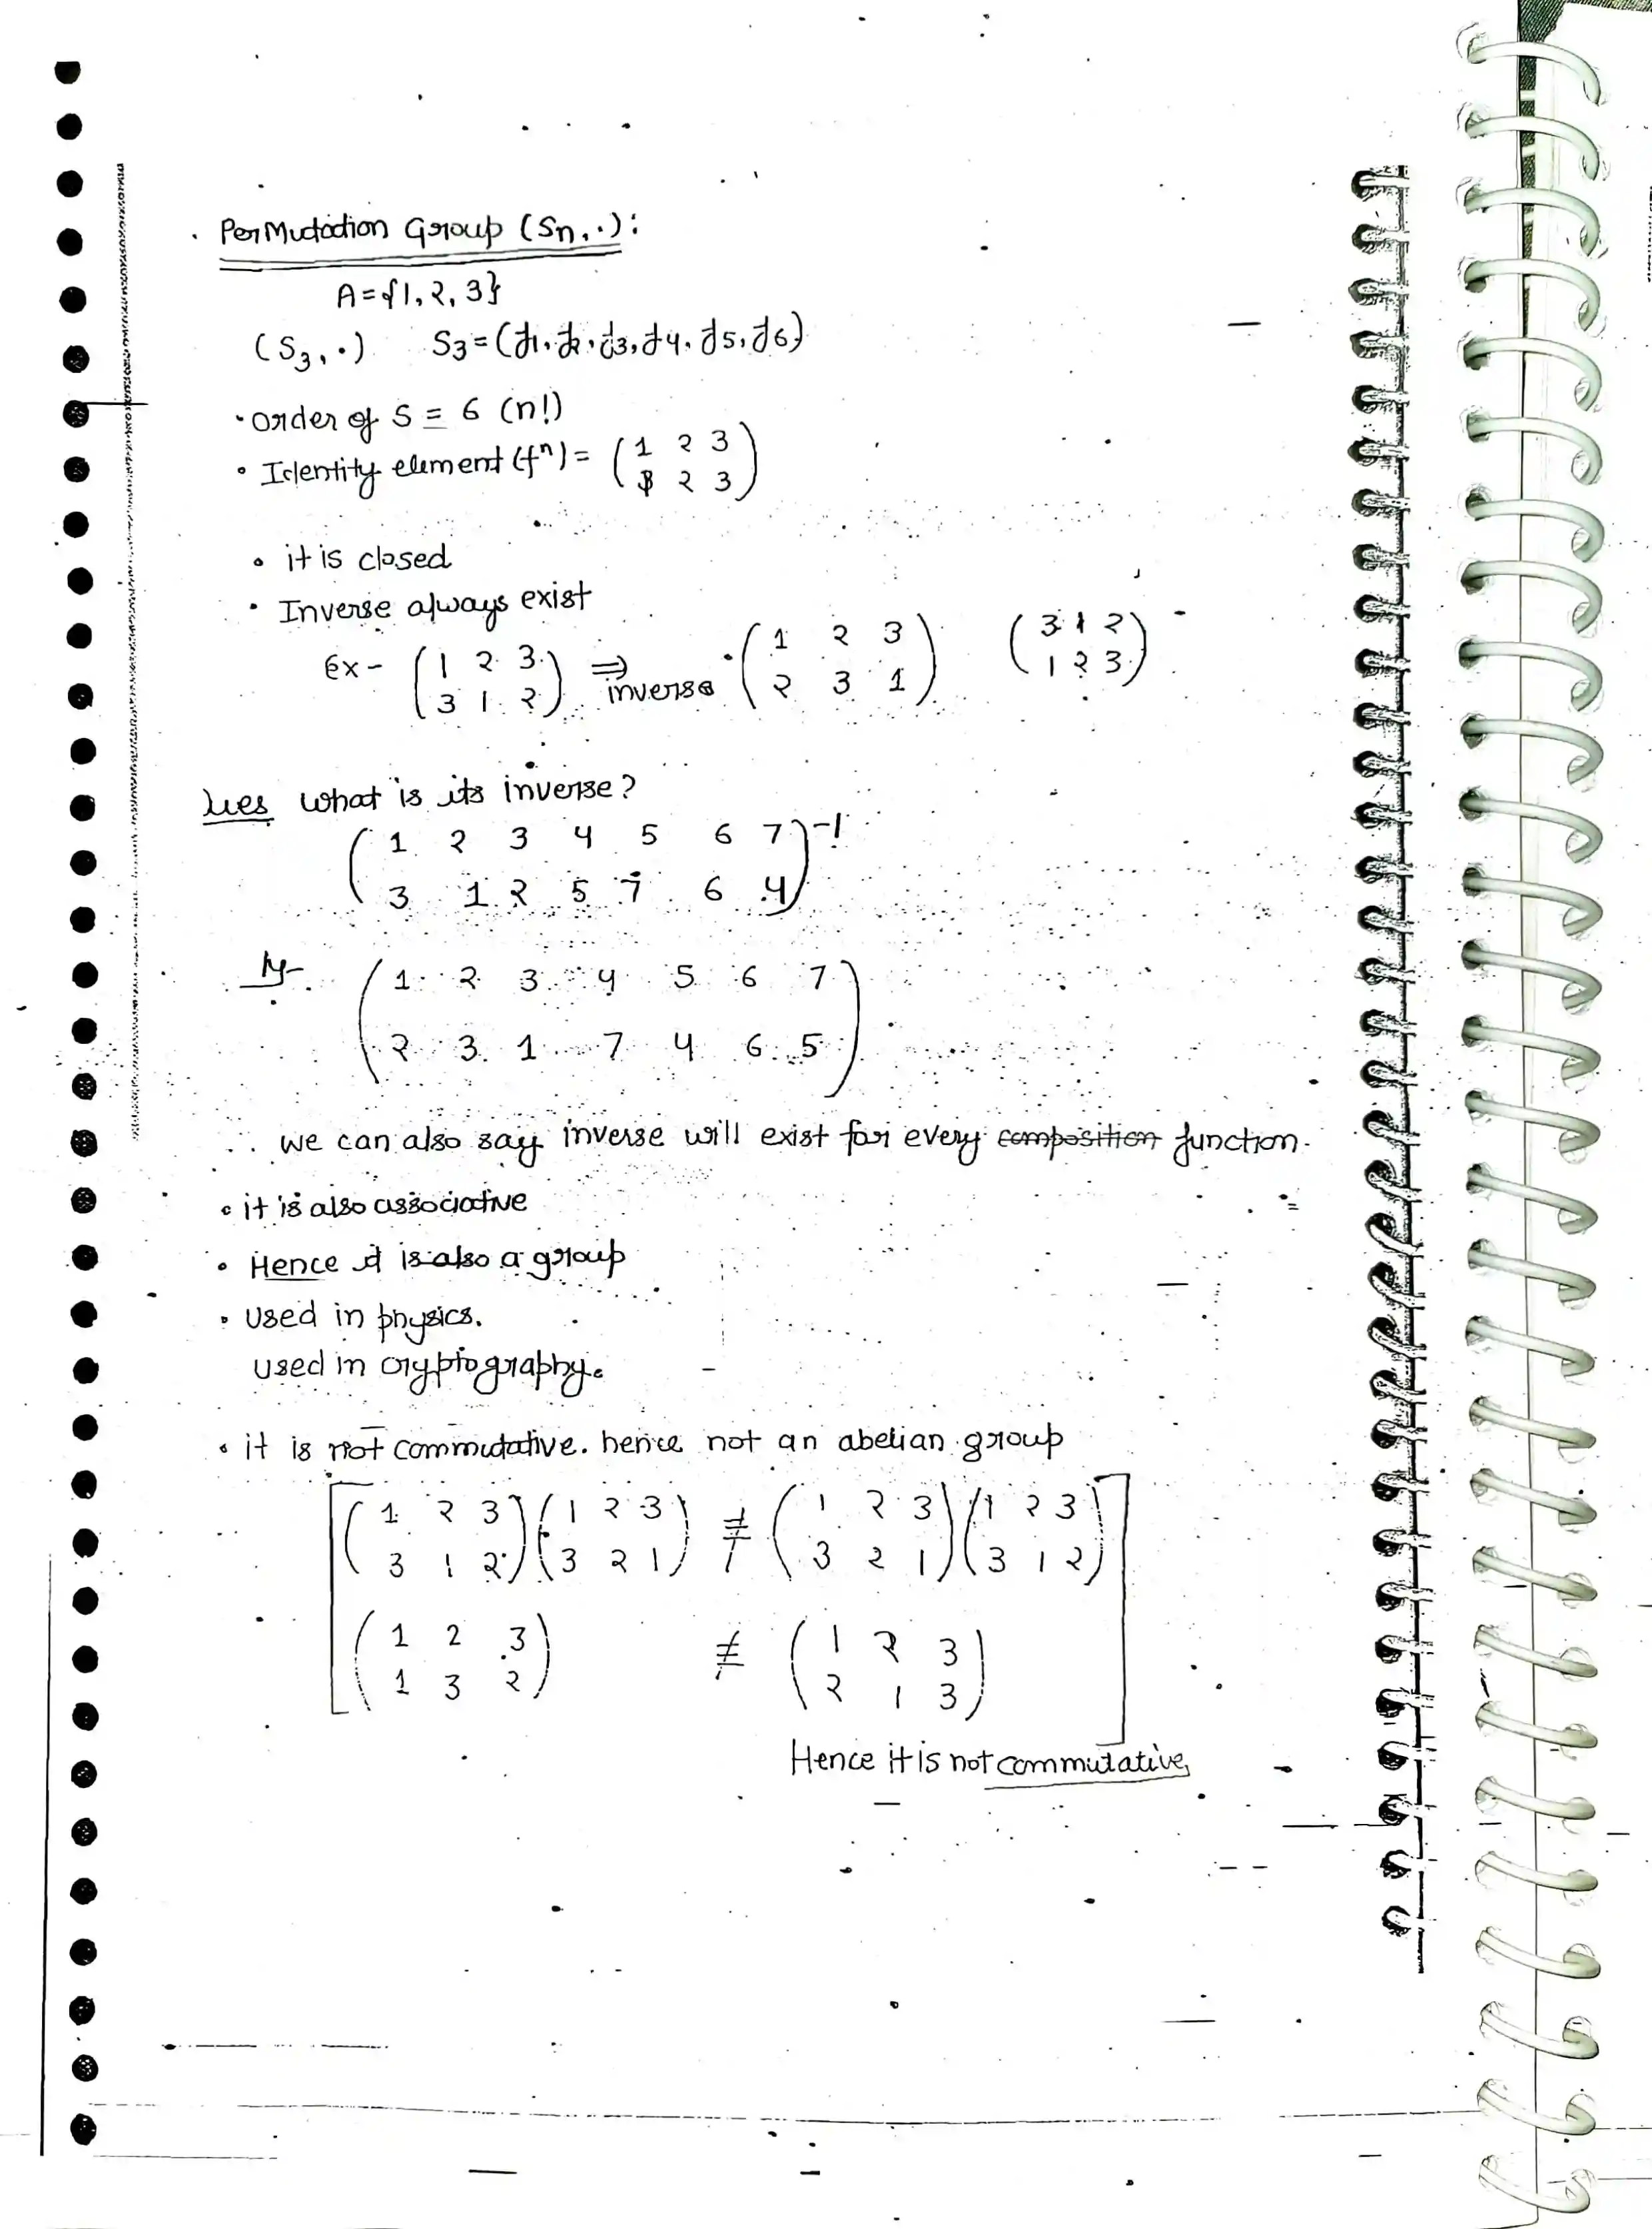 Permutation Group (Sn, ·):
A = {1, 2, 3}
(S3, ·) S3 = (f1, f2, f3, f4, f5, f6)
• Order of S = 6 (n!)
• Identity element (fⁿ) = ( 1 2 3
1 2 3 )
• it is closed
• Inverse always exist
Ex - ( 1 2 3 ⇒ ( 1 2 3 ( 3 1 2
3 1 2 ) inverse 2 3 1 ) 1 2 3 )
Ques What is its inverse?
( 1 2 3 4 5 6 7 )⁻¹
3 1 2 5 7 6 4
( 1 2 3 4 5 6 7
2 3 1 7 4 6 5 )
we can also say inverse will exist for every composition function.
• it is also associative
• Hence it is also a group
• Used in physics.
used in cryptography.
• it is not commutative. hence not an abelian group
[ ( 1 2 3 ) ( 1 2 3 ) ≠ ( 1 2 3 ) ( 1 2 3 )
3 1 2 3 2 1 3 2 1 3 1 2
( 1 2 3 ) ≠ ( 1 2 3 )
1 3 2 2 1 3 ]
Hence it is not commutative,